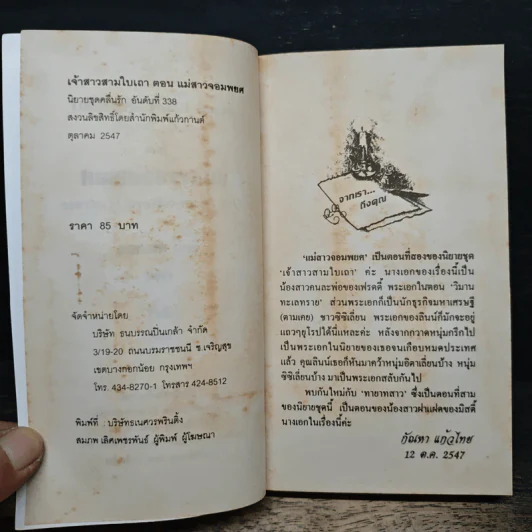 เจ้าสาวสามใบเถา ตอน แม่สาวจอมพยศ
นิยายชุดคลื่นรัก อันดับที่ 338
สงวนลิขสิทธิ์โดยสำนักพิมพ์แก้วกานต์
ตุลาคม 2547
ราคา 85 บาท
จัดจำหน่ายโดย
บริษัท ธนบรรณปิ่นเกล้า จำกัด
3/19-20 ถนนบรมราชชนนี ซ.เจริญสุข
เขตบางกอกน้อย กรุงเทพฯ
โทร. 434-8270-1 โทรสาร 424-8512
พิมพ์ที่ : บริษัทธเนศวรพรินติ้ง
สมภพ เลิศเพชรพันธ์ ผู้พิมพ์ ผู้โฆษณา
จากเรา...
ถึงคุณ
'แม่สาวจอมพยศ' เป็นตอนที่สองของนิยายชุด
'เจ้าสาวสามใบเถา' ค่ะ นางเอกของเรื่องนี้เป็น
น้องสาวคนละพ่อของเฟรดดี้ พระเอกในตอน 'วิมาน
ทะเลทราย' ส่วนพระเอกก็เป็นนักธุรกิจมหาเศรษฐี
(ตามเคย) ชาวซิซิเลียน พระเอกของลินน์ก็มักจะอยู่
แถวๆยุโรปได้นี้แหละค่ะ หลังจากกวาดหนุ่มกรีกไป
เป็นพระเอกในนิยายของเธอจนเกือบหมดประเทศ
แล้ว คุณลินน์เธอก็หันมาคว้าหนุ่มอิตาเลี่ยนบ้าง หนุ่ม
ซิซิเลี่ยนบ้าง มาเป็นพระเอกสลับกันไป
พบกันใหม่กับ 'ทายาทสาว' ซึ่งเป็นตอนที่สาม
ของนิยายชุดนี้ เป็นตอนของน้องสาวฝาแฝดของมิสตี้
นางเอกในเรื่องนี้ค่ะ
กัณหา แก้วไทย
12 ต.ค. 2547